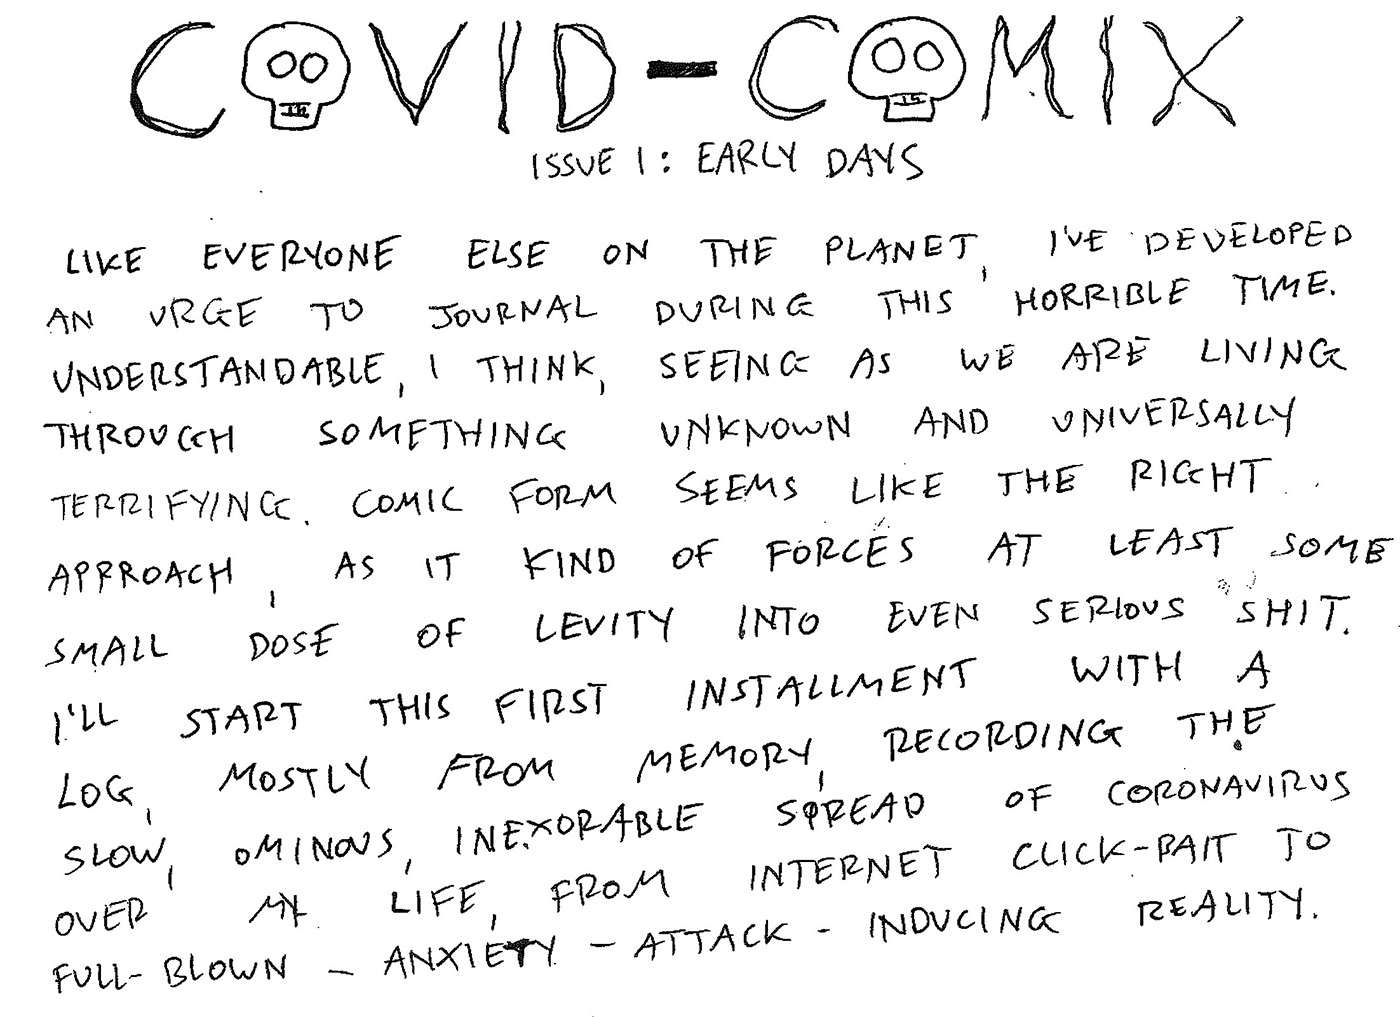 COVID-COMIX
ISSUE 1: EARLY DAYS
LIKE EVERYONE ELSE ON THE PLANET, I'VE DEVELOPED
AN URGE TO JOURNAL DURING THIS HORRIBLE TIME.
UNDERSTANDABLE, I THINK, SEEING AS WE ARE LIVING
THROUGH SOMETHING UNKNOWN AND UNIVERSALLY
TERRIFYING. COMIC FORM SEEMS LIKE THE RIGHT
APPROACH, AS IT KIND OF FORCES AT LEAST SOME
SMALL DOSE OF LEVITY INTO EVEN SERIOUS SHIT.
I'LL START THIS FIRST INSTALLMENT WITH A
LOG, MOSTLY FROM MEMORY, RECORDING THE
SLOW, OMINOUS, INEXORABLE SPREAD OF CORONAVIRUS
OVER MY LIFE, FROM INTERNET CLICK-BAIT TO
FULL-BLOWN - ANXIETY - ATTACK - INDUCING REALITY.